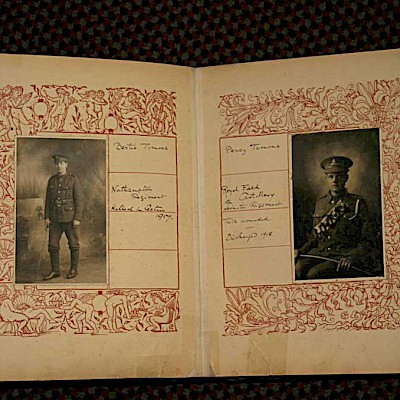 Bertie Tomms
Nathampton
Regiment
Killed in Action
1917.
Percy Tomms
Royal Field
Artillery
Regiment
wounded
Discharged 1918